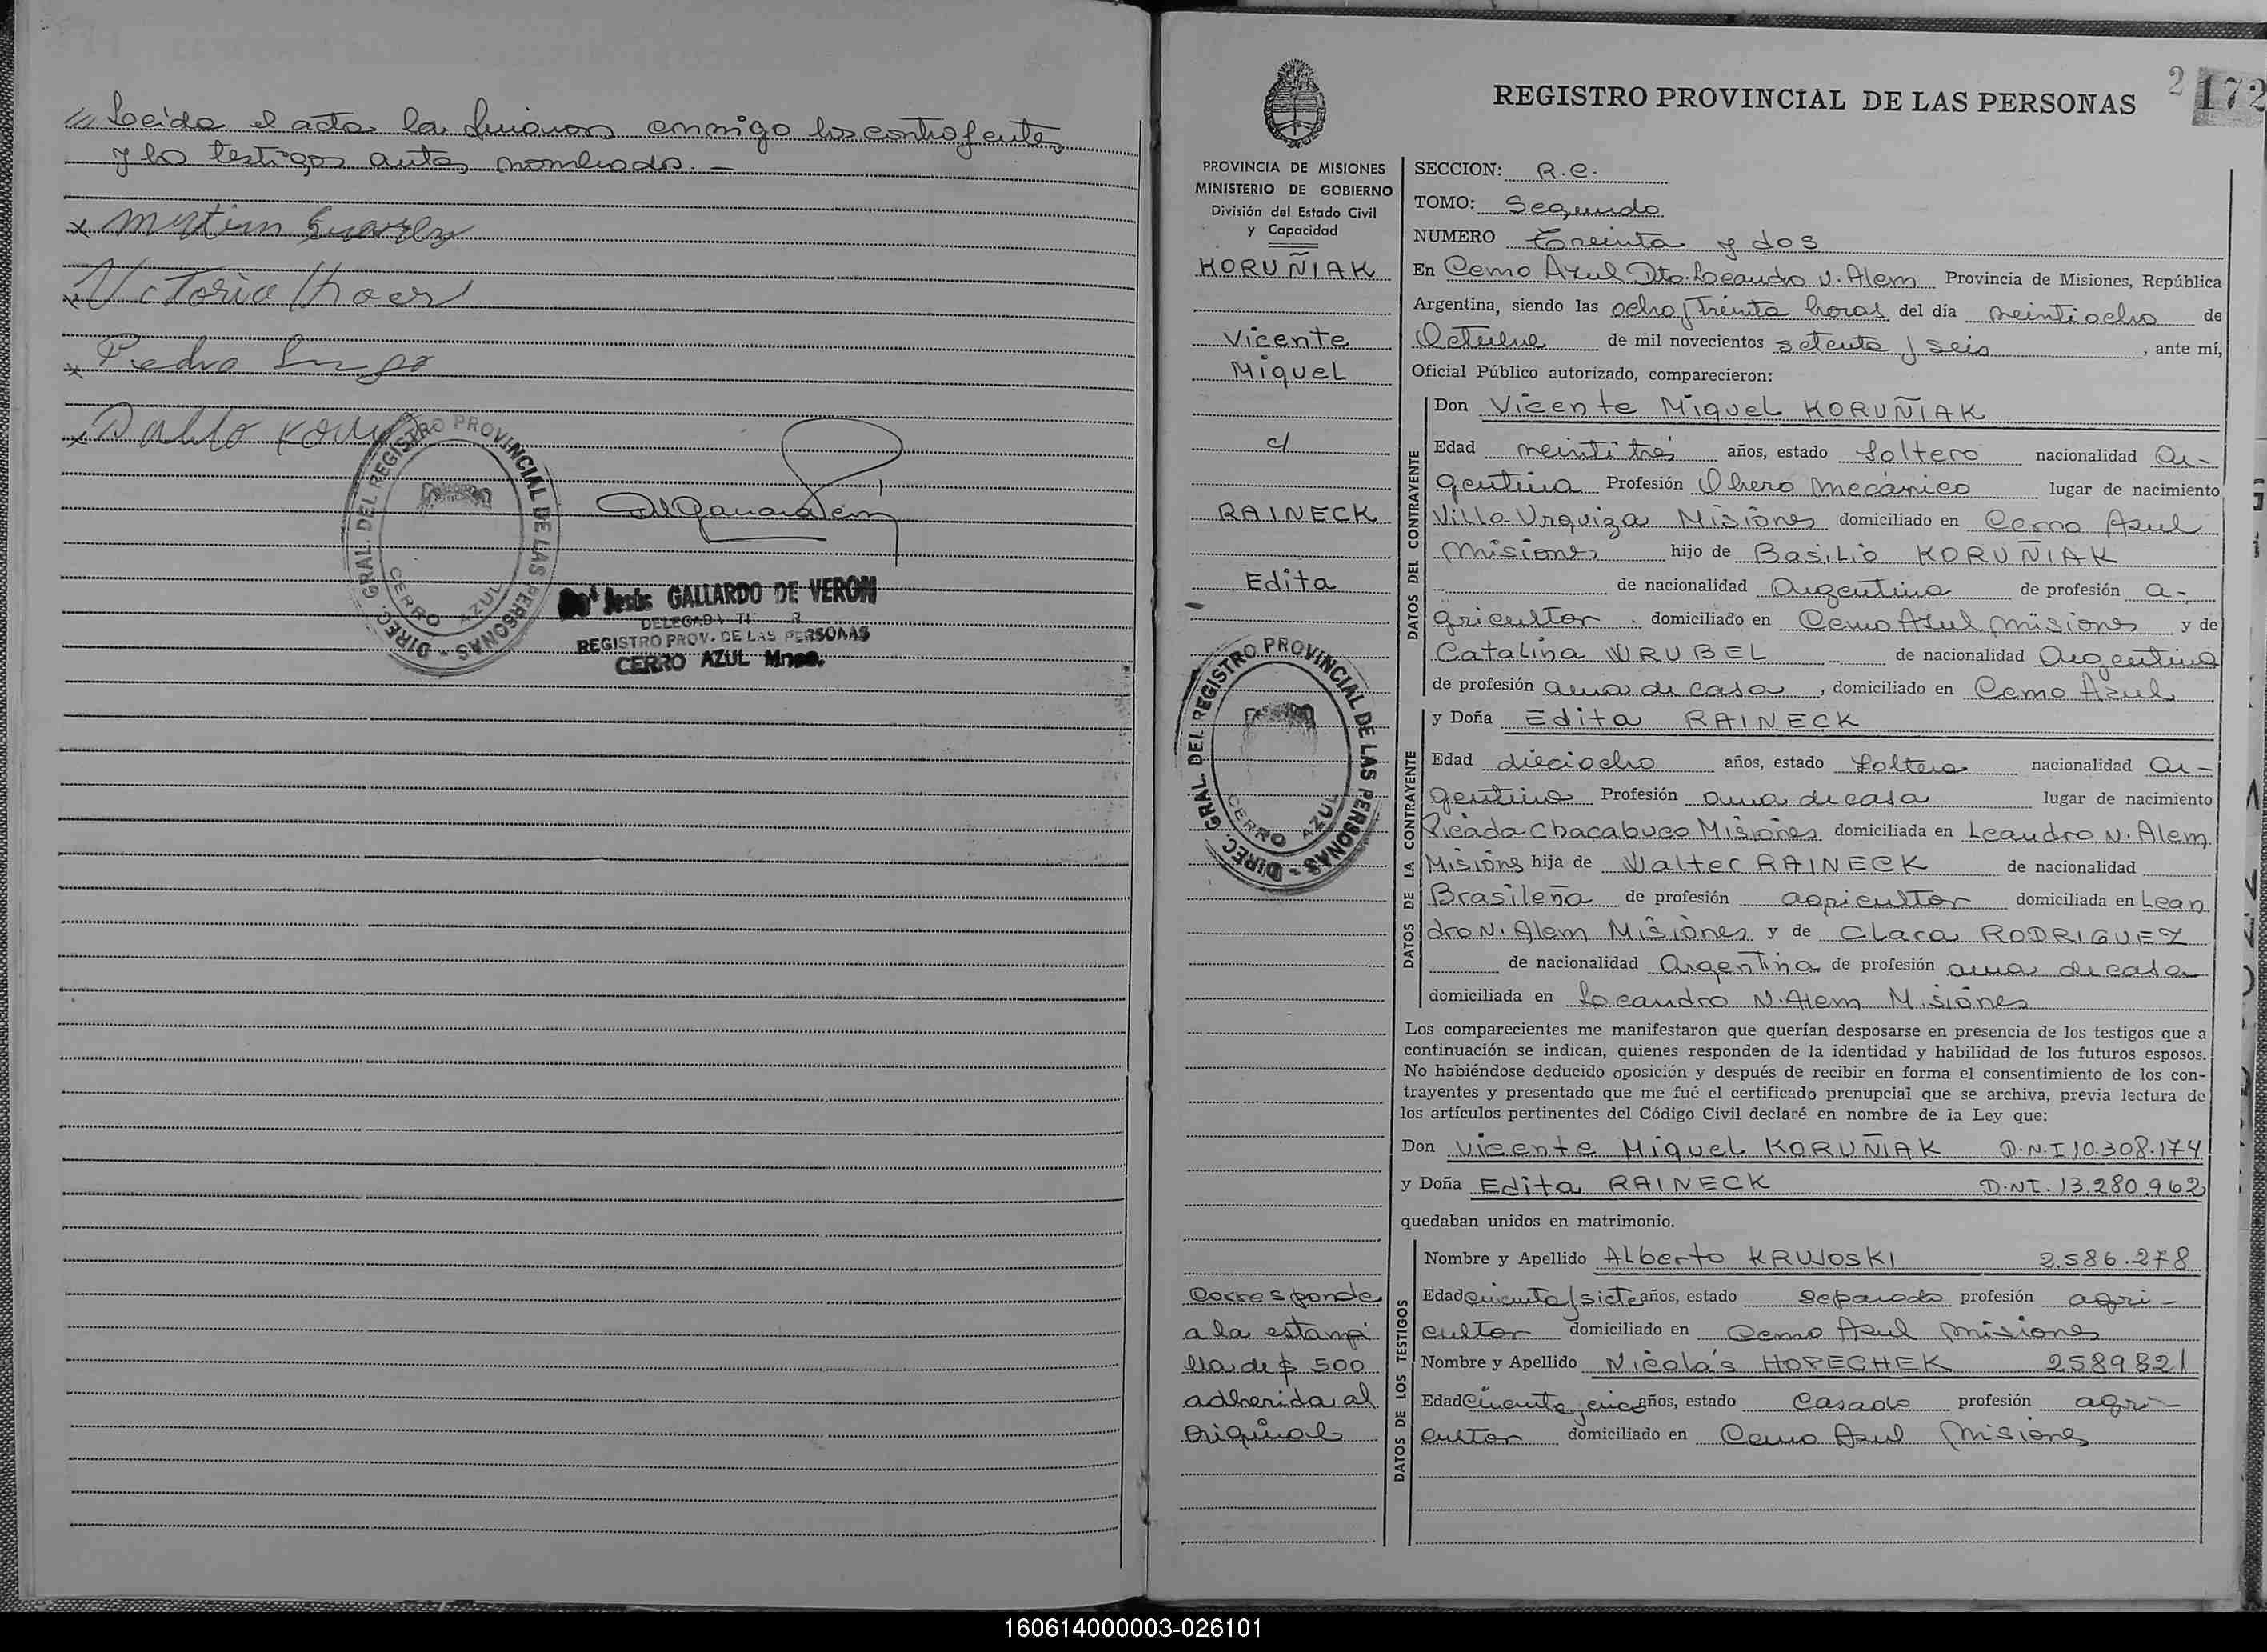 Leida el acta la firmaron conmigo los contrayentes
y los testigos antes nombrados.—
x Mirtian Suarez
x Victoria
x Pedro
x Pablo
DIREC. GRAL. DEL REGISTRO PROVINCIAL DE LAS PERSONAS -
CERRO AZUL
Jesús GALLARDO DE VERON
REGISTRO PROV. DE LAS PERSONAS
CERRO AZUL Mnes.
REGISTRO PROVINCIAL DE LAS PERSONAS
2 172
PROVINCIA DE MISIONES
MINISTERIO DE GOBIERNO
División del Estado Civil
y Capacidad
KORUÑIAK
Vicente
Miguel
c/
RAINECK
Edita
DIREC. GRAL. DEL REGISTRO PROVINCIAL DE LAS PERSONAS -
CERRO AZUL
Corresponde
a la estampi
lla de $ 500
adherida al
original
SECCION: R.C.
TOMO: Segundo
NUMERO Treinta y dos
En Cerro Azul Dto. Leandro N. Alem Provincia de Misiones, República
Argentina, siendo las ocho y treinta horas del día veintiocho de
Octubre de mil novecientos setenta y seis, ante mí,
Oficial Público autorizado, comparecieron:
DATOS DEL CONTRAYENTE
Don Vicente Miguel KORUÑIAK
Edad veintitrés años, estado Soltero nacionalidad Ar-
gentina Profesión Obrero mecánico lugar de nacimiento
Villa Urquiza Misiones domiciliado en Cerro Azul
Misiones hijo de Basilio KORUÑIAK
de nacionalidad Argentina de profesión a-
gricultor. domiciliado en Cerro Azul Misiones y de
Catalina WRUBEL de nacionalidad Argentina
de profesión ama de casa, domiciliado en Cerro Azul
DATOS DE LA CONTRAYENTE
y Doña Edita RAINECK
Edad dieciocho años, estado Soltera nacionalidad Ar-
gentina Profesión ama de casa lugar de nacimiento
Picada Chacabuco Misiones domiciliada en Leandro N. Alem
Misiones hija de Walter RAINECK de nacionalidad
Brasileña de profesión agricultor domiciliada en Lean
dro N. Alem Misiones y de Clara RODRIGUEZ
de nacionalidad Argentina de profesión ama de casa
domiciliada en Leandro N. Alem Misiones
Los comparecientes me manifestaron que querían desposarse en presencia de los testigos que a
continuación se indican, quienes responden de la identidad y habilidad de los futuros esposos.
No habiéndose deducido oposición y después de recibir en forma el consentimiento de los con-
trayentes y presentado que me fué el certificado prenupcial que se archiva, previa lectura de
los artículos pertinentes del Código Civil declaré en nombre de la Ley que:
Don Vicente Miguel KORUÑIAK D.N.I 10.308.174
y Doña Edita RAINECK D.NI. 13.280.962
quedaban unidos en matrimonio.
DATOS DE LOS TESTIGOS
Nombre y Apellido Alberto KRUJOSKI 2.586.278
Edad cincuenta y siete años, estado separado profesión agri-
cultor domiciliado en Cerro Azul Misiones
Nombre y Apellido Nicolás HOPECHEK 2589821
Edad Cincuenta y cinco años, estado Casado profesión agri-
cultor domiciliado en Cerro Azul Misiones
160614000003-026101